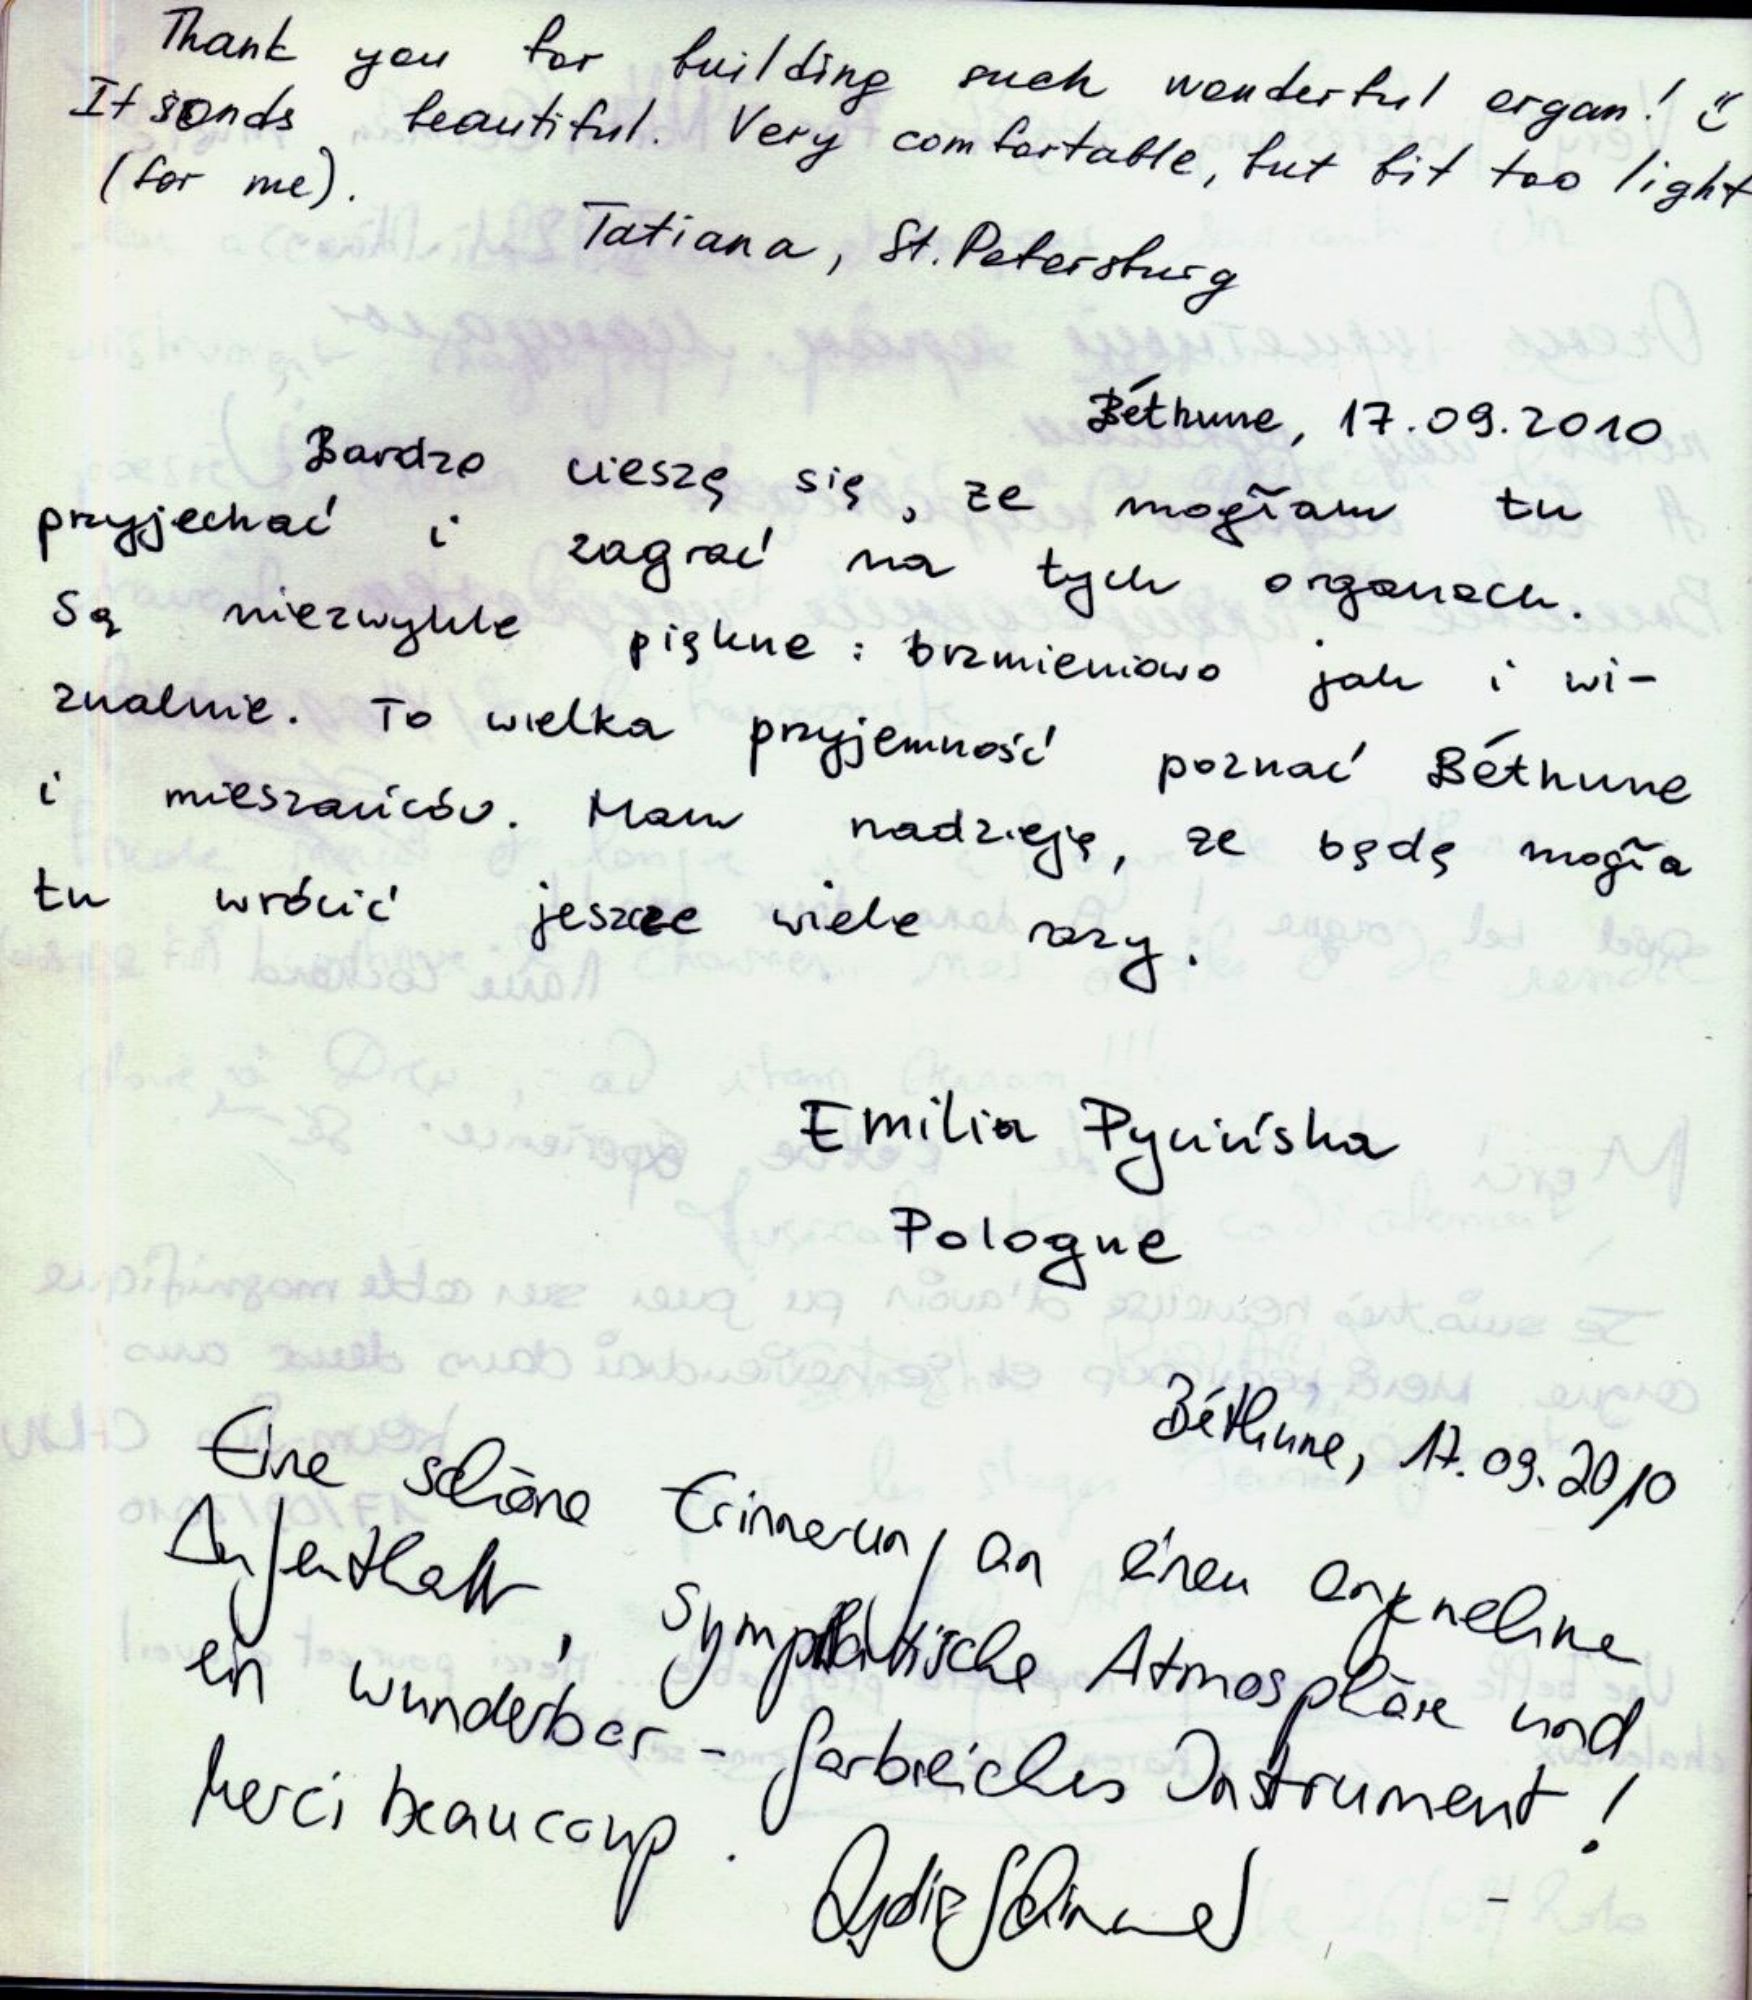 Thank you for building such wonderful organ! :)
It sonds beautiful. Very comfortable, but bit too light
(for me).
Tatiana, St. Petersburg
Béthune, 17.09.2010
Bardzo cieszę się, że mogłam tu
przyjechać i zagrać na tych organach.
Są niezwykle piękne : brzmieniowo jak i wi-
zualnie. To wielka przyjemność poznać Béthune
i mieszańców. Mam nadzieję, że będę mogła
tu wrócić jeszcze wiele razy.
Emilia
Pologne
Béthune, 17.09.2010
Eine schöne Erinnerung an einen angenehme
Aufenthalt, sympathische Atmosphäre und
ein wunderbar - farbreiches Instrument!
Merci beaucoup.